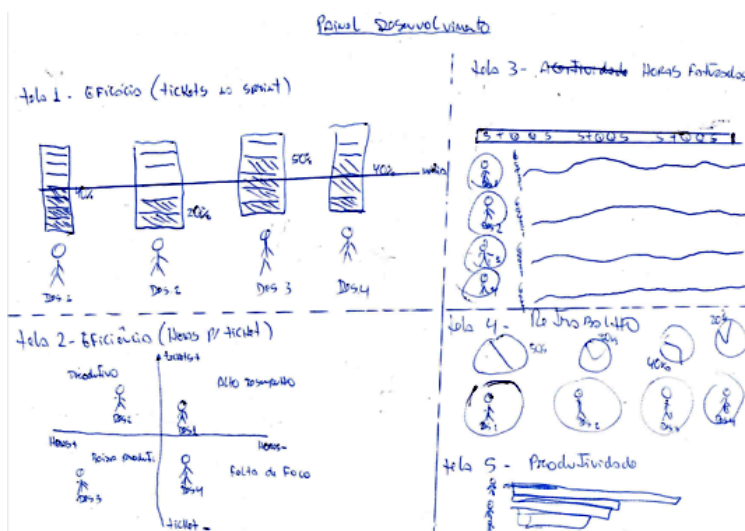 Painel Desenvolvimento
tela 1 - Eficácia (tickets no sprint)
40%
20%
50%
40%
média
Des 1
Des 2
Des 3
Des 4
tela 2 - Eficiência (Horas p/ ticket)
tickets+
Produtivo
Alto desempenho
Des 2
Des 1
Horas+
Horas-
Baixa produti.
Falta de Foco
Des 3
Des 4
ticket -
tela 3 - Horas Faturadas
S T Q Q S S T Q Q S S T Q Q S
2
3
4
tela 4 - Retrabalho
50%
40%
20%
tela 5 - Produtividade